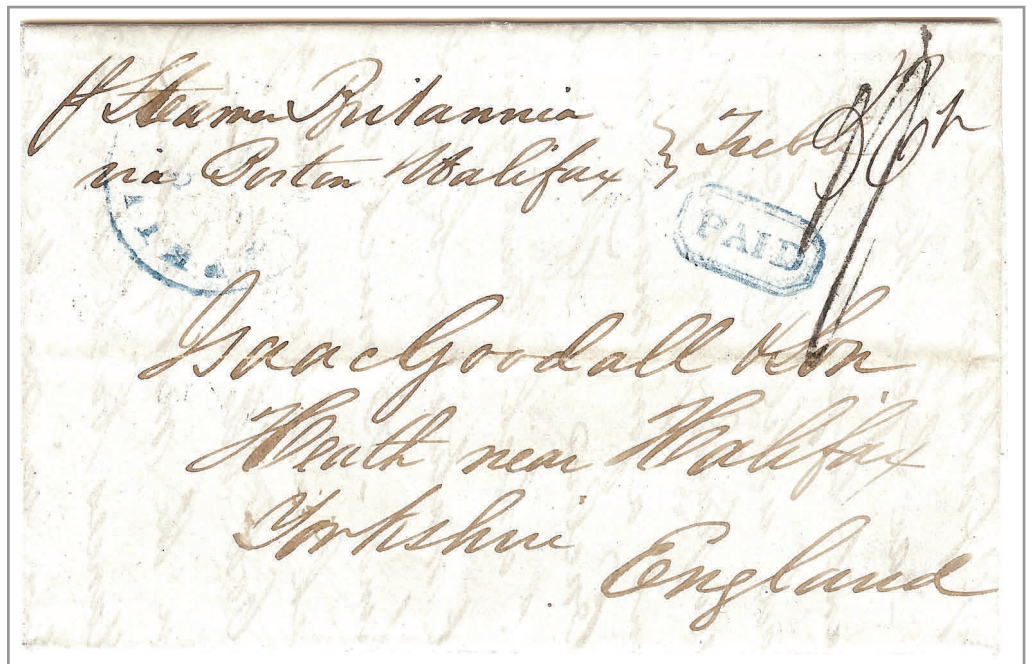 p Steamer Britannia
via Boston Halifax } Treble
PAID
Isaac Goodall & Son
Heath near Halifax
Yorkshire
England